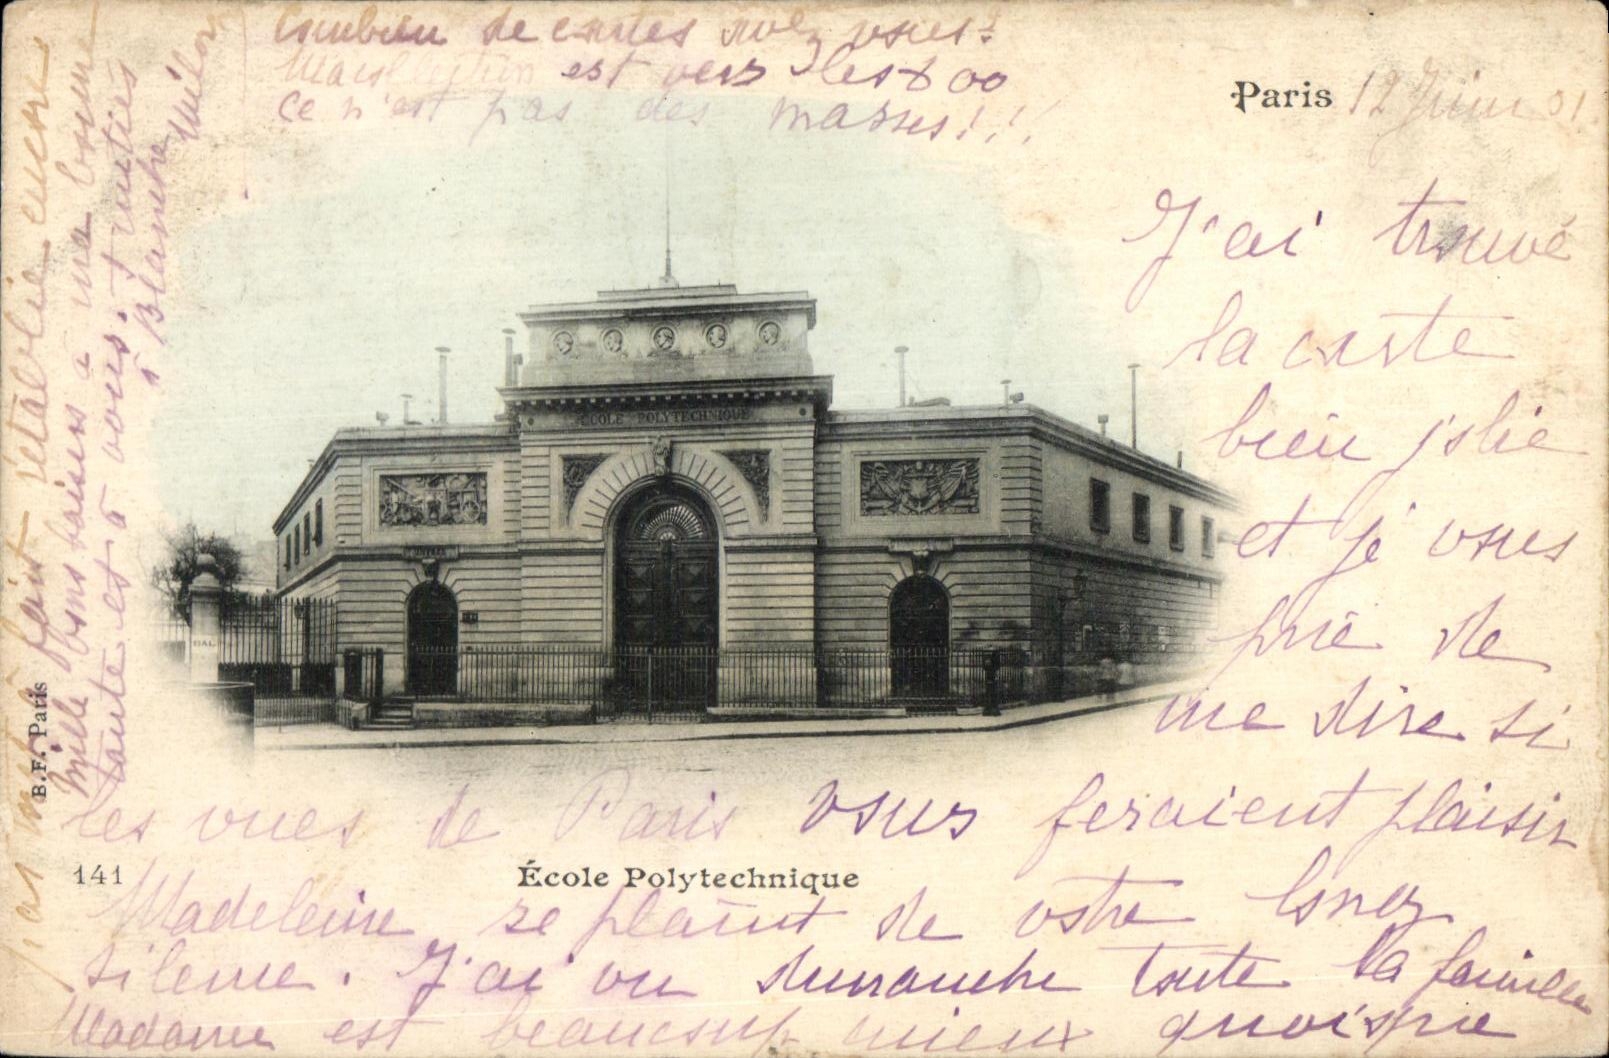 Combien de cartes avez vous?
est vers les 800
ce n'est pas des masses!!!
Paris 12 Juin 01.
J'ai trouvé
la carte
bien jolie
et je vous
prie de
me dire si
les vues de Paris vous feraient plaisir
Madeleine se plaint de votre long
silence. J'ai vu dimanche toute la famille
Madame est beaucoup mieux quoique
pas tout à fait rétablie encore
Mille bons baisers à ma bonne
toute et à vous. Amitiés
à Blanche
ÉCOLE POLYTECHNIQUE
BAL
B.F. Paris
141
École Polytechnique